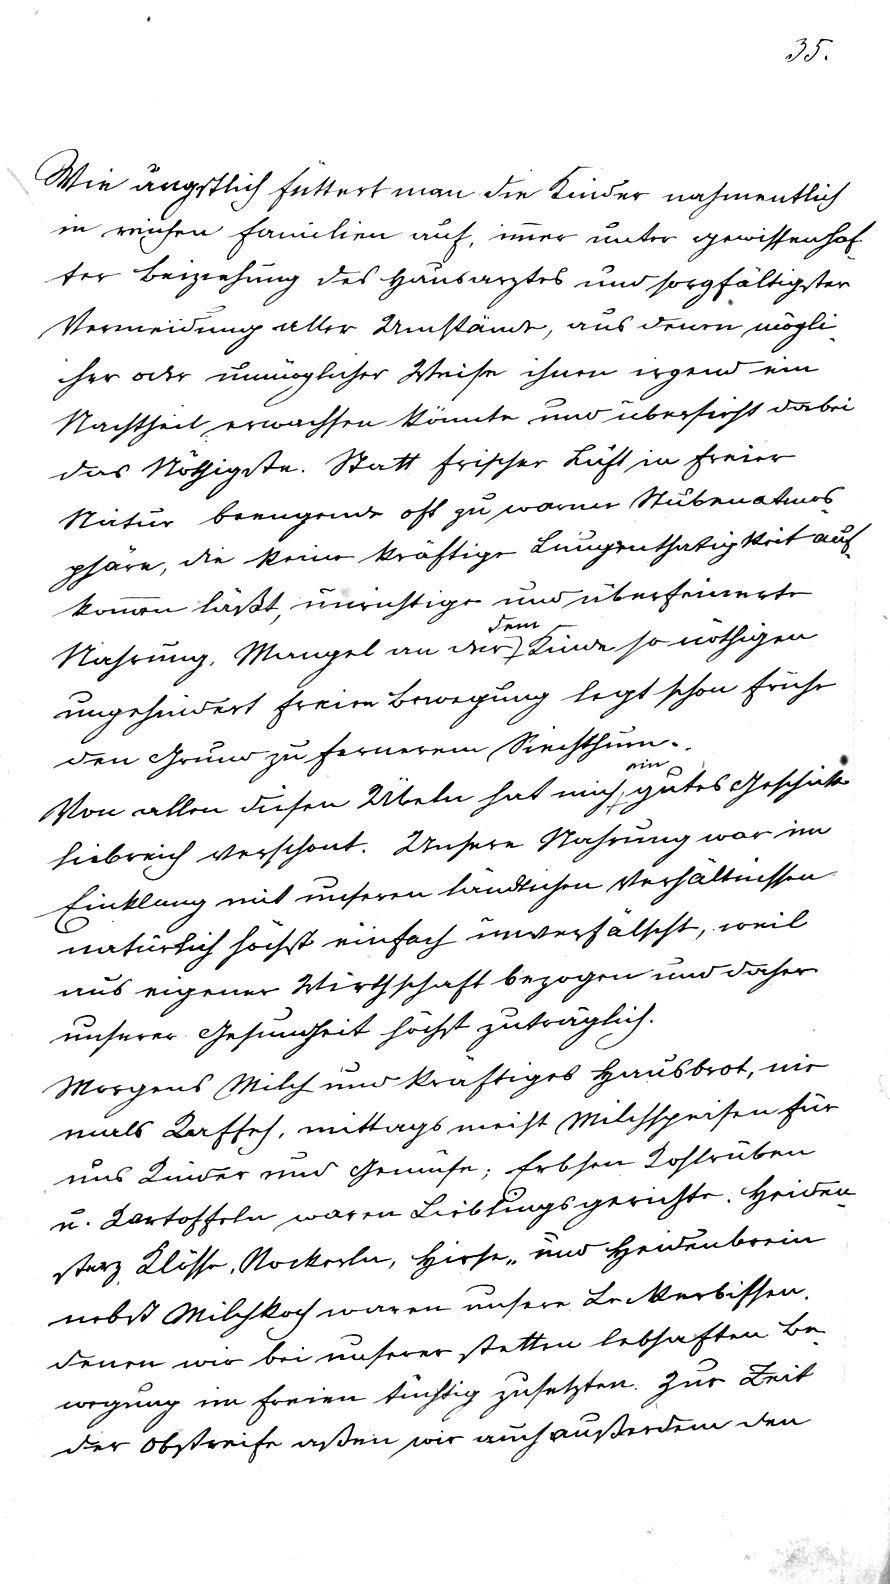 35.
Wie ängstlich füttert man die Kinder nahmentlich
in reichen Familien auf, im̅er unter gewissenhaf-
ter Beiziehung des Hausarztes und sorgfältigster
Vermeidung aller Umstände, aus denen mögli-
cher oder unmöglicher Weise ihnen irgend ein
Nachtheil erwachsen könnte und übersieht dabei
das Nöthigste. Statt frischer Luft in freier
Natur beengende oft zu warme Stubenatmos-
phäre, die keine kräftige Lungenthatigkeit auf-
kom̅en läßt, unrichtige und überfeinerte
dem
Nahrung, Mangel an der Kinde so nöthigen
ungehindert freien Bewegung legt schon frühe
den Grund zu fernerem Siechthum.
ein
Von allen diesen Übeln hat mich gutes Geschick
liebreich verschont. Unsere Nahrung war im
Einklang mit unseren ländlichen Verhältnissen
natürlich höchst einfach unverfälscht, weil
aus eigener Wirthschaft bezogen und daher
unserer Gesundheit höchst zuträglich.
Morgens Milch und kräftiges Hausbrot, nie
mals Kaffeh, mittags meist Milchspeisen für
uns Kinder und Gemüse; Erbsen Kohlrüben
u. Kartoffeln waren Lieblingsgerichte. Heiden-
sterz, Klösse, Nockerln, Hirse- und Heidenbrein
nebst Milchkoch waren unsere Leckerbissen,
denen wir bei unserer stetten lebhaften Be-
wegung im Freien tüchtig zusetzten. Zur Zeit
der Obstreife aßen wir auch außerdem den